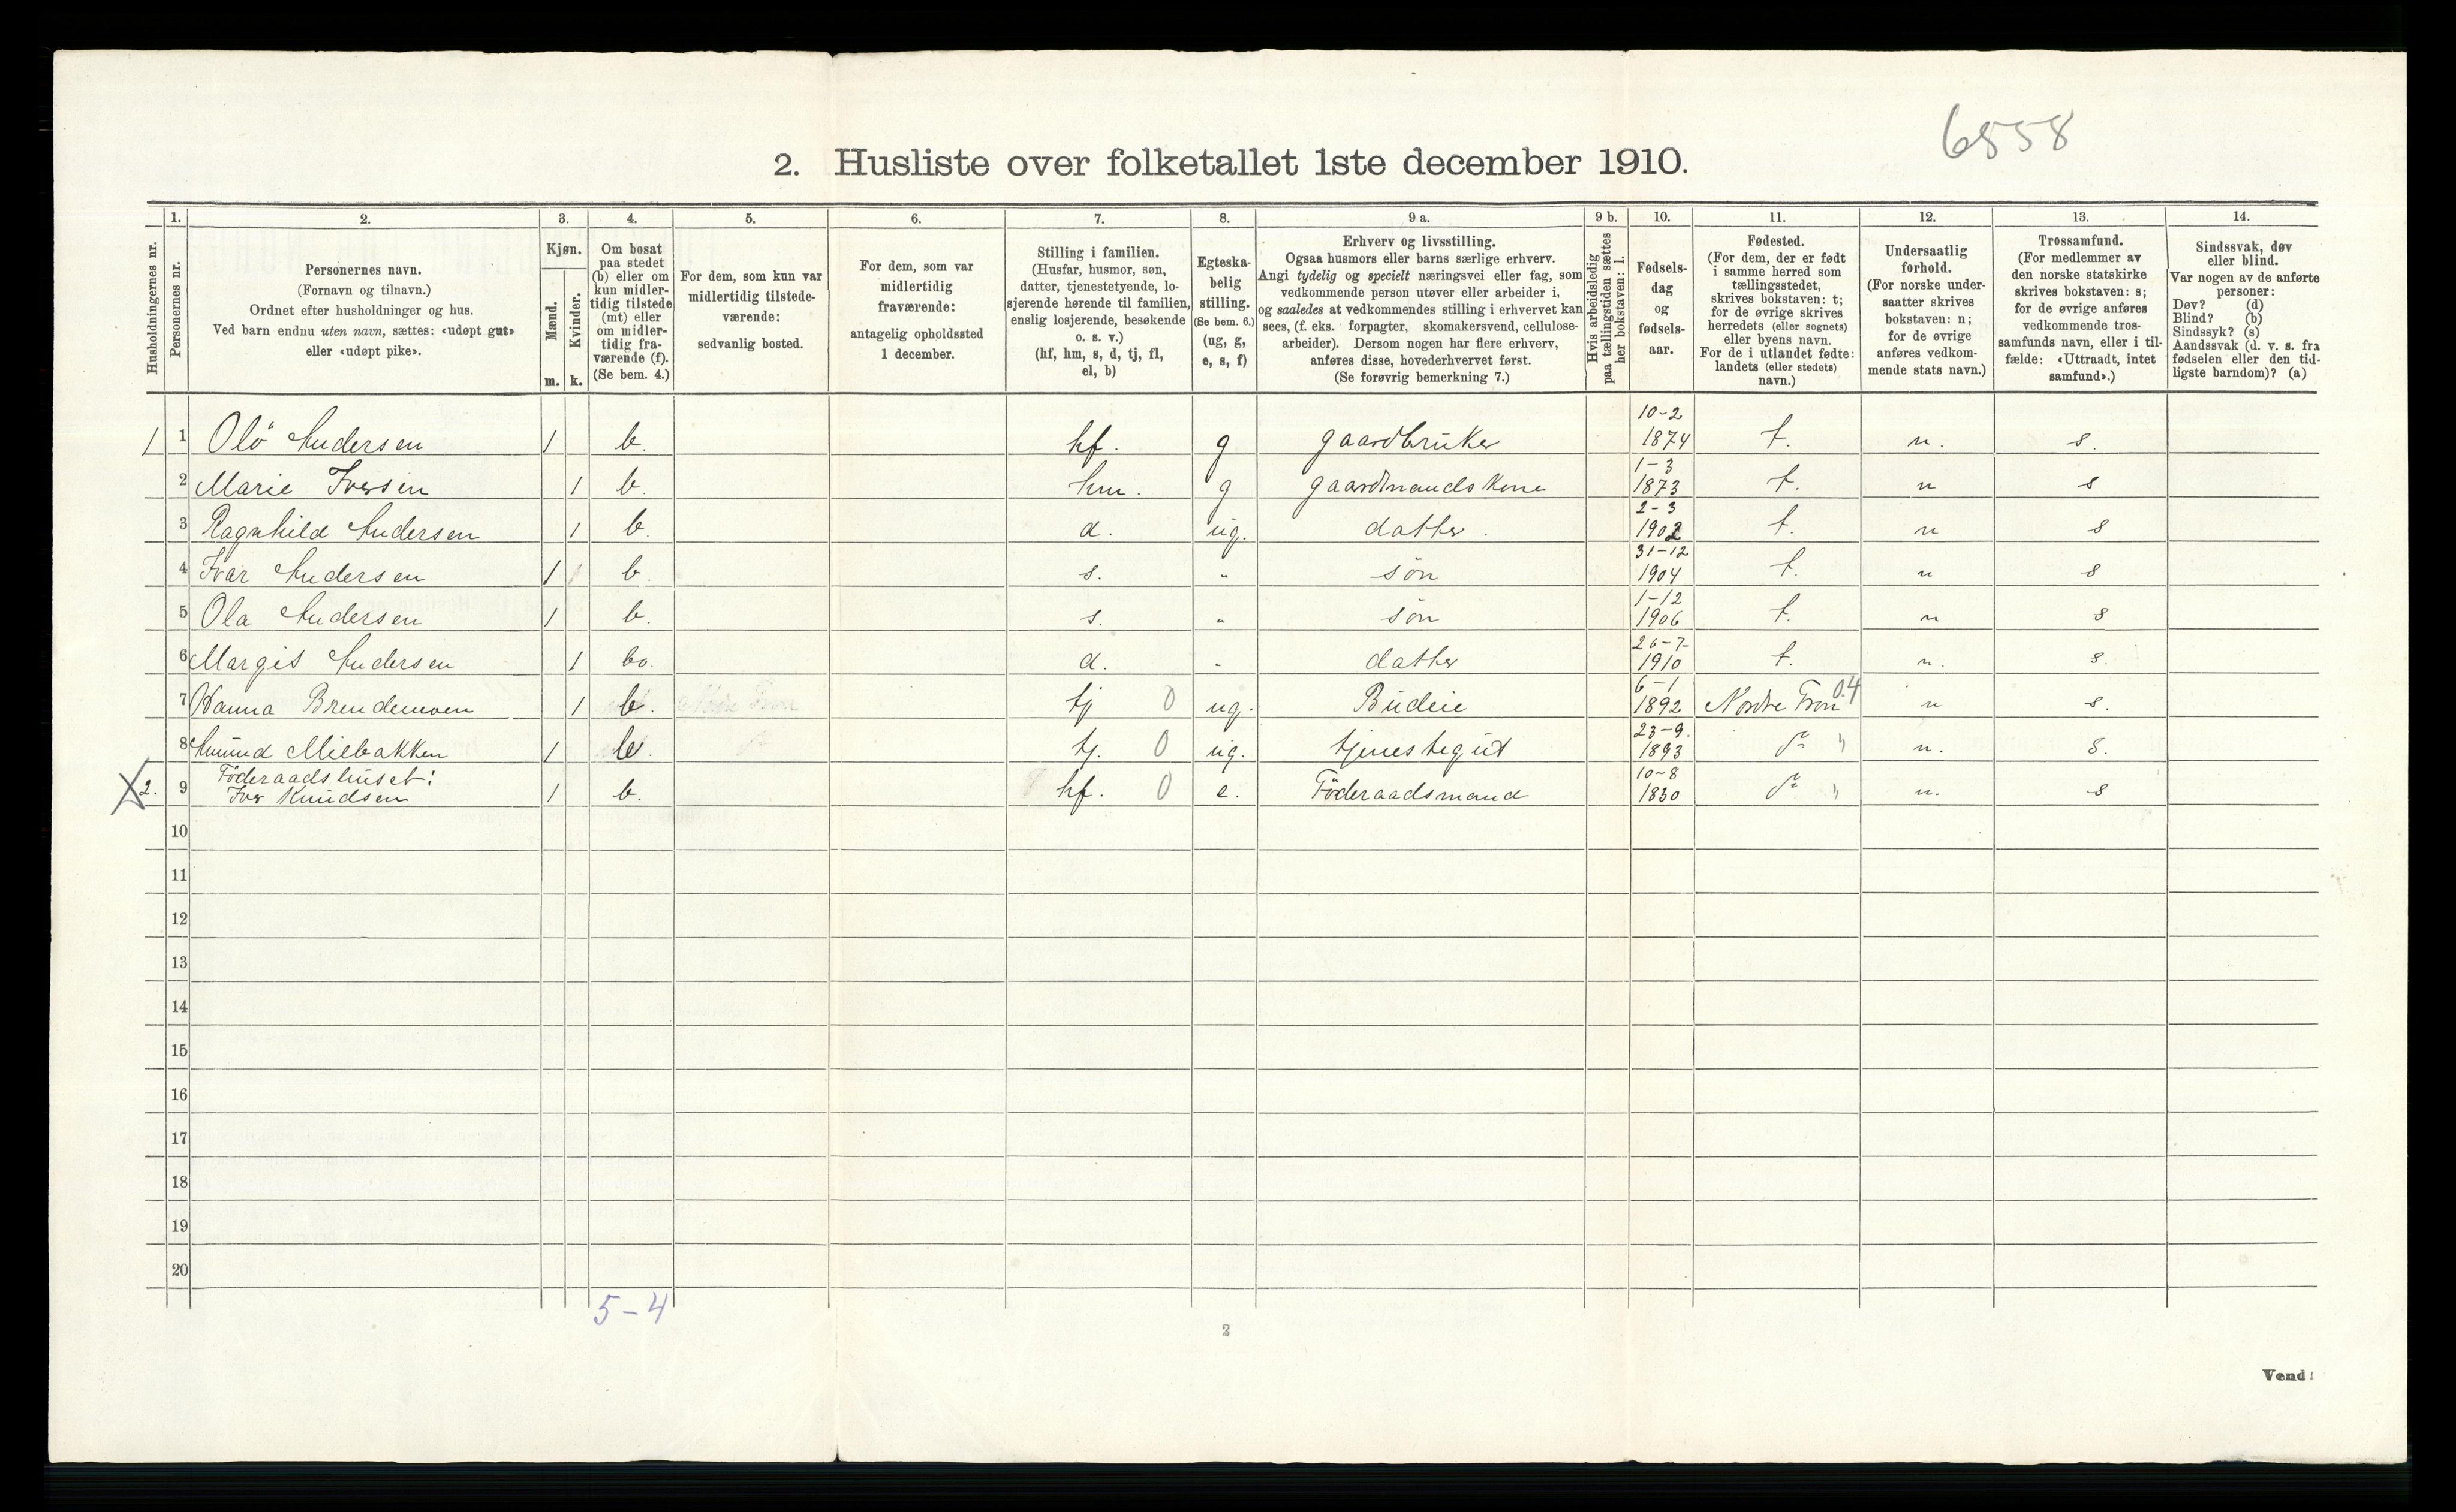 6558
2. Husliste over folketallet 1ste december 1910.
Husholdningernes nr.
1.
Personernes nr.
2.
Personernes navn.
(Fornavn og tilnavn.)
Ordnet efter husholdninger og hus.
Ved barn endnu uten navn, sættes: «udøpt gut»
eller «udøpt pike».
3.
Kjøn.
Mænd.
Kvinder.
m. k.
4.
Om bosat
paa stedet
(b) eller om
kun midler-
tidig tilstede
(mt) eller
om midler-
tidig fra-
værende (f).
(Se bem. 4.)
5.
For dem, som kun var
midlertidig tilstede-
værende:
sedvanlig bosted.
6.
For dem, som var
midlertidig
fraværende:
antagelig opholdssted
1 december.
7.
Stilling i familien.
(Husfar, husmor, søn,
datter, tjenestetyende, lo-
sjerende hørende til familien,
enslig losjerende, besøkende
o. s. v.)
(hf, hm, s, d, tj, fl,
el, b)
8.
Egteska-
belig
stilling.
(Se bem. 6.)
(ug, g,
e, s, f)
9 a.
Erhverv og livsstilling.
Ogsaa husmors eller barns særlige erhverv.
Angi tydelig og specielt næringsvei eller fag, som
vedkommende person utøver eller arbeider i,
og saaledes at vedkommendes stilling i erhvervet kan
sees, (f. eks. forpagter, skomakersvend, cellulose-
arbeider). Dersom nogen har flere erhverv,
anføres disse, hovederhvervet først.
(Se forøvrig bemerkning 7.)
9 b.
Hvis arbeidsledig
paa tællingstiden sættes
her bokstaven: l.
10.
Fødsels-
dag
og
fødsels-
aar.
11.
Fødested.
(For dem, der er født
i samme herred som
tællingsstedet,
skrives bokstaven: t;
for de øvrige skrives
herredets (eller sognets)
eller byens navn.
For de i utlandet fødte:
landets (eller stedets)
navn.)
12.
Undersaatlig
forhold.
(For norske under-
saatter skrives
bokstaven: n;
for de øvrige
anføres vedkom-
mende stats navn.)
13.
Trossamfund.
(For medlemmer av
den norske statskirke
skrives bokstaven: s;
for de øvrige anføres
vedkommende tros-
samfunds navn, eller i til-
fælde: «Uttraadt, intet
samfund».)
14.
Sindssvak, døv
eller blind.
Var nogen av de anførte
personer:
Døv? (d)
Blind? (b)
Sindssyk? (s)
Aandssvak (d. v. s. fra
fødselen eller den tid-
ligste barndom)? (a)
1 1 Olö Andersen 1 b. hf. g gaardbruker 10-2 1874 t. n. s.
2 Marie Iversen 1 b. hm. g gaardmandskone 1-3 1873 t. n s
3 Ragnhild Andersen 1 b. d. ug. datter. 2-3 1902 t. n s
4 Ivar Andersen 1 b. s. " sön 31-12 1904 t. n s
5 Ola Andersen 1 b. s. " sön 1-12 1906 t. n s
6 Margit Andersen 1 bo. d. " datter 26-7- 1910 t. n. s.
7 Hanna Brendemoen 1 b. tj 0 ug. Budeie 6-1 1892 Nordre Fron 04 n s.
8 Amund Miebakken 1 b. tj. 0 ug. tjenestegut 23-9. 1893 do " n. s.
2. 9 Föderaadshuset:
Iver Knudsen 1 b. hf. 0 e. Föderaadsmand 10-8 1830 do " n. s
10
11
12
13
14
15
16
17
18
19
20
5-4
2
Vend!